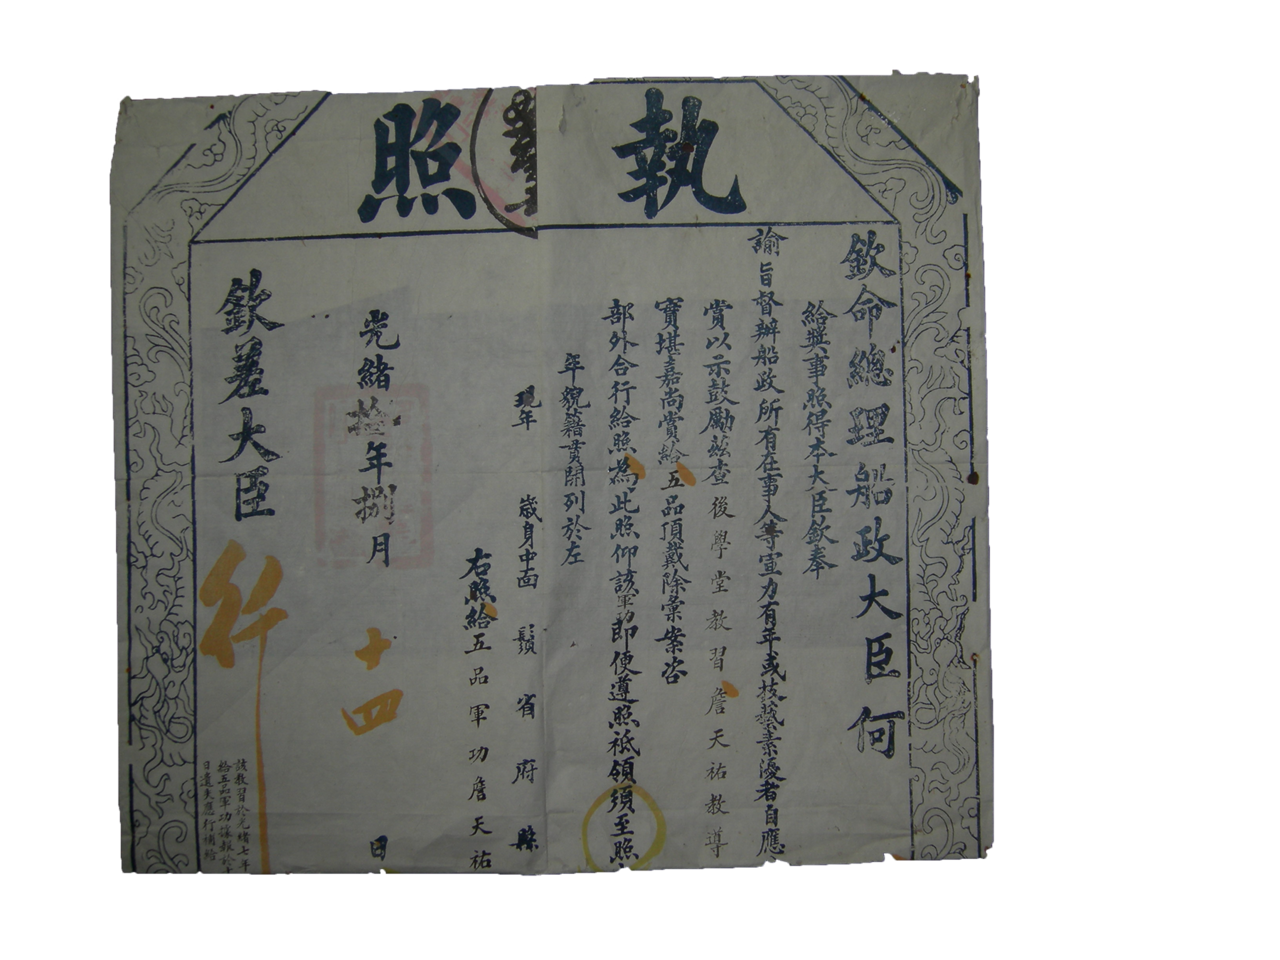 執照
欽命總理船政大臣何
給獎事照得本大臣欽奉
諭旨督辦船政所有在事人等宣力有年或技藝素優者自應
賞以示鼓勵茲查後學堂教習詹天祐教導
實堪嘉尚賞給五品頂戴除彙案咨
部外合行給照為此照仰該軍功即便遵照祇領須至照
年貌籍貫開列於左
現年 歲身中面 鬚 省 府 縣
右照給五品軍功詹天祐
光緒拾年捌月十四日
欽差大臣
該教習於光緒七年
給五品軍功據報於
日遺失應行補給